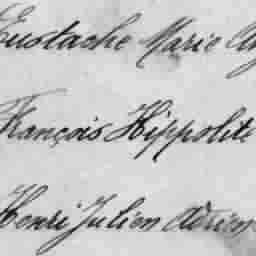 Eustache Marie
François Hippolite
Henri Julien Adrien